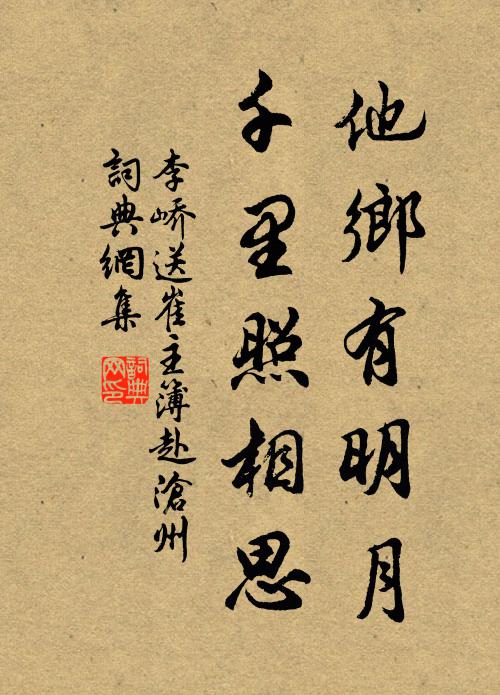 他鄉有明月
千里照相思
李嶠送崔主簿赴滄州
詞典網集
詞典网印